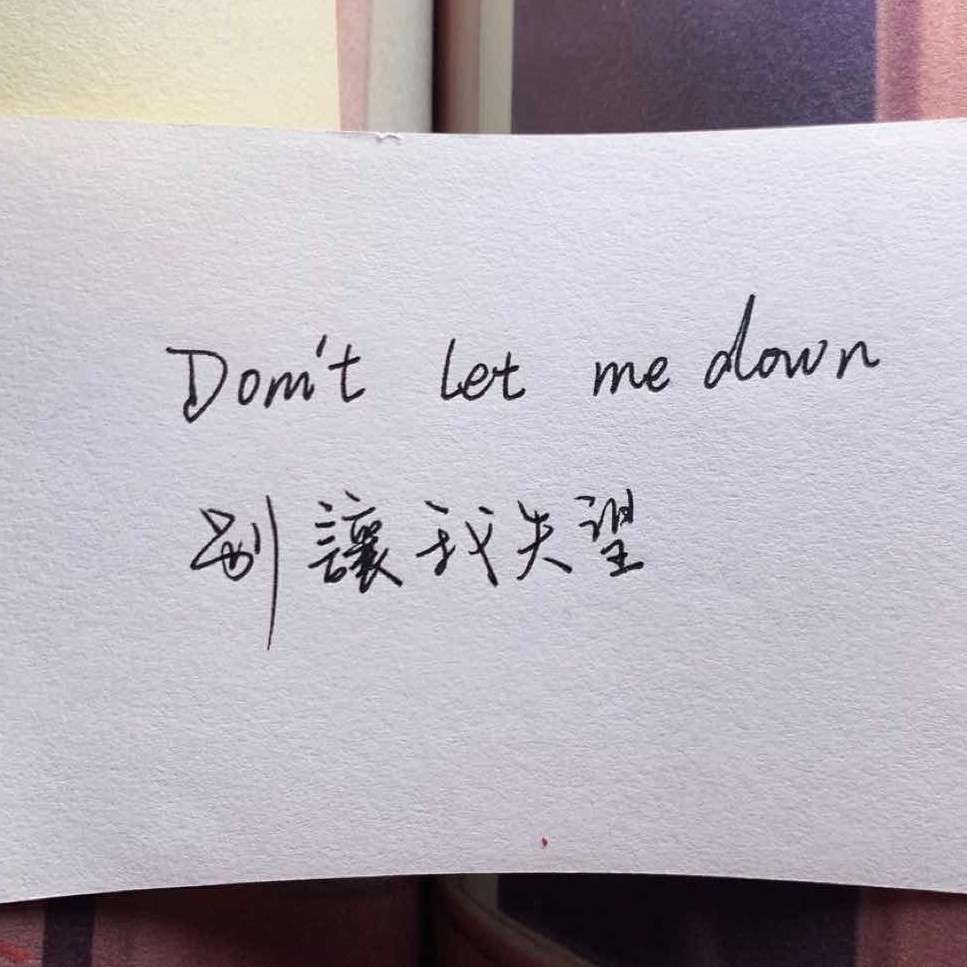 Don't let me down
別讓我失望